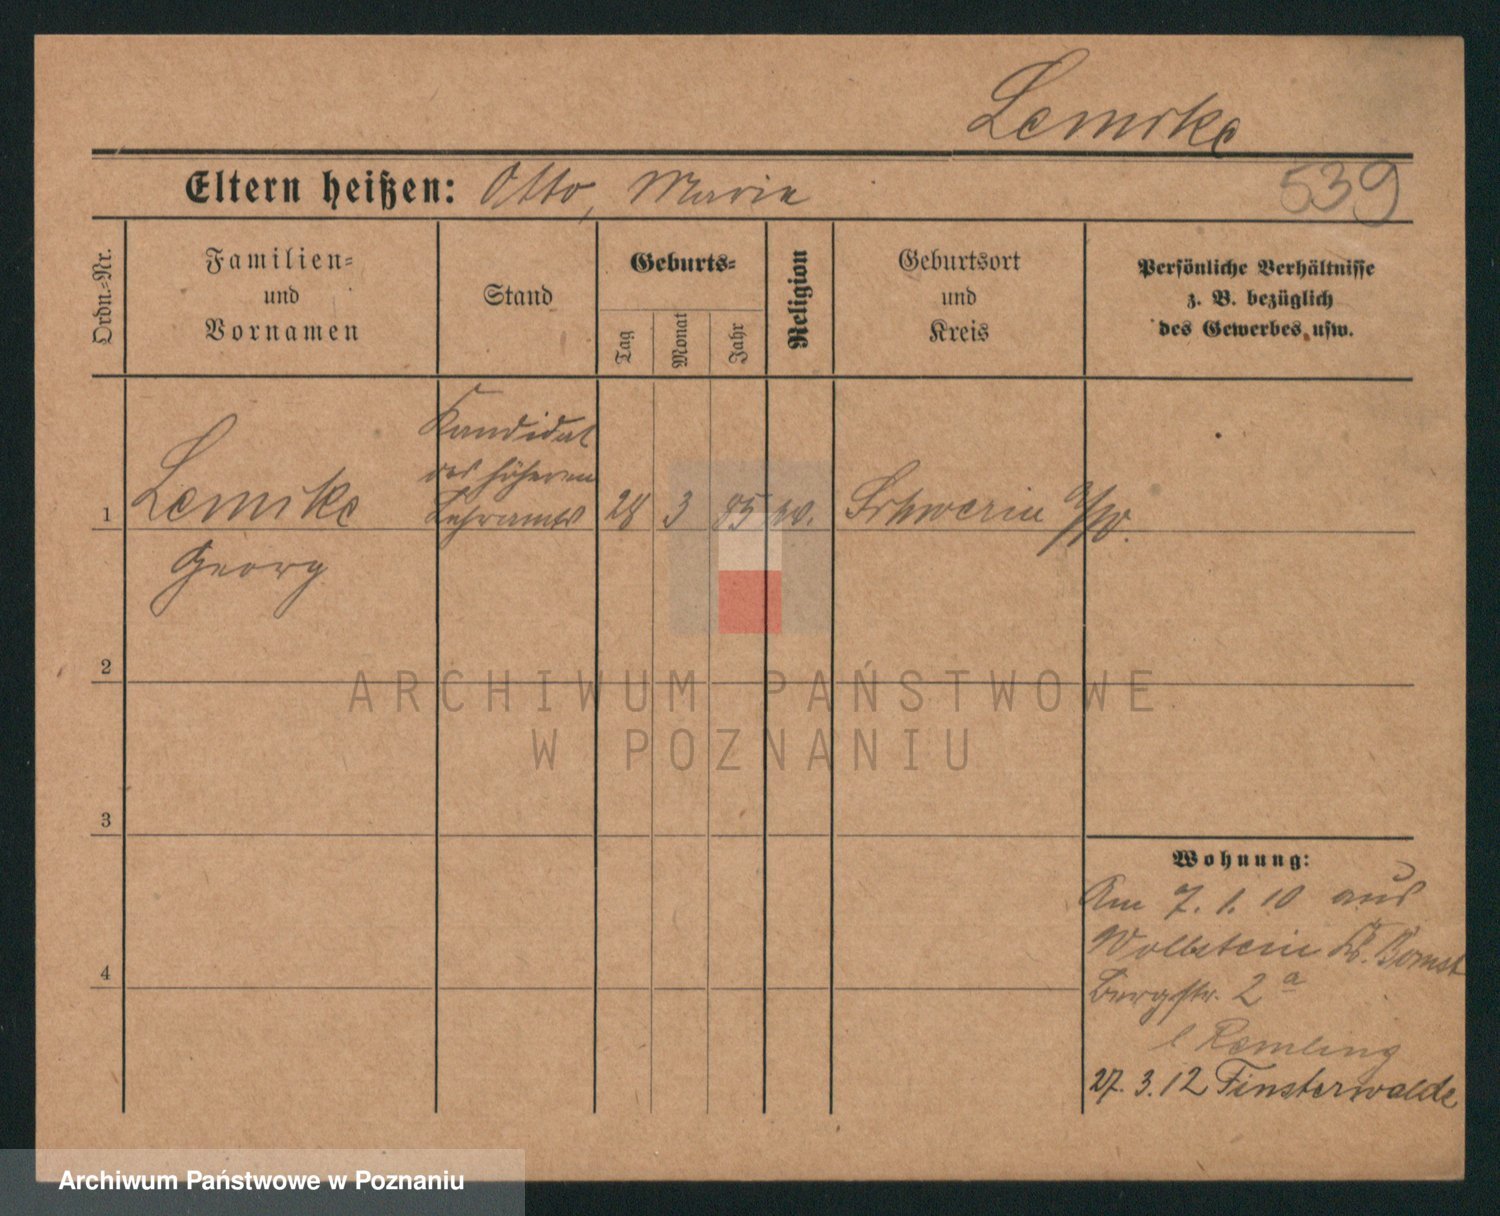 Lemcke
Eltern heißen: Otto, Marie
539
Ordn.-Nr.
Familien-
und
Vornamen
Stand
Geburts-
Tag
Monat
Jahr
Religion
Geburtsort
und
Kreis
Persönliche Verhältnisse
z. B. bezüglich
des Gewerbes usw.
Kandidat
des höheren
Lehramts
1
Lemcke
28
3
85
ev.
Schwerin a/W.
Georg
2
3
4
Wohnung:
Am 7. 1. 10 aus
Wollstein Kr. Bomst
Bergstr. 2 a
b Remling
27. 3. 12 Finsterwalde
ARCHIWUM PAŃSTWOWE
W POZNANIU
Archiwum Państwowe w Poznaniu